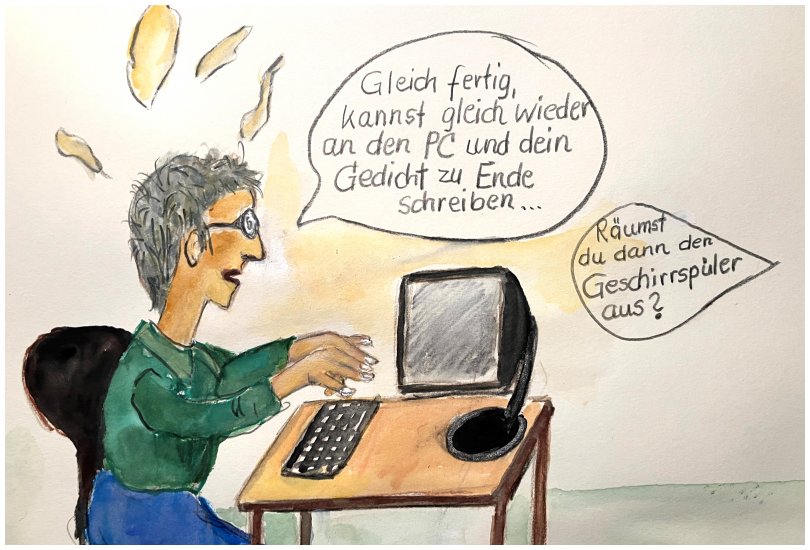 Gleich fertig,
kannst gleich wieder
an den PC und dein
Gedicht zu Ende
schreiben...
Räumst
du dann den
Geschirrspüler
aus?